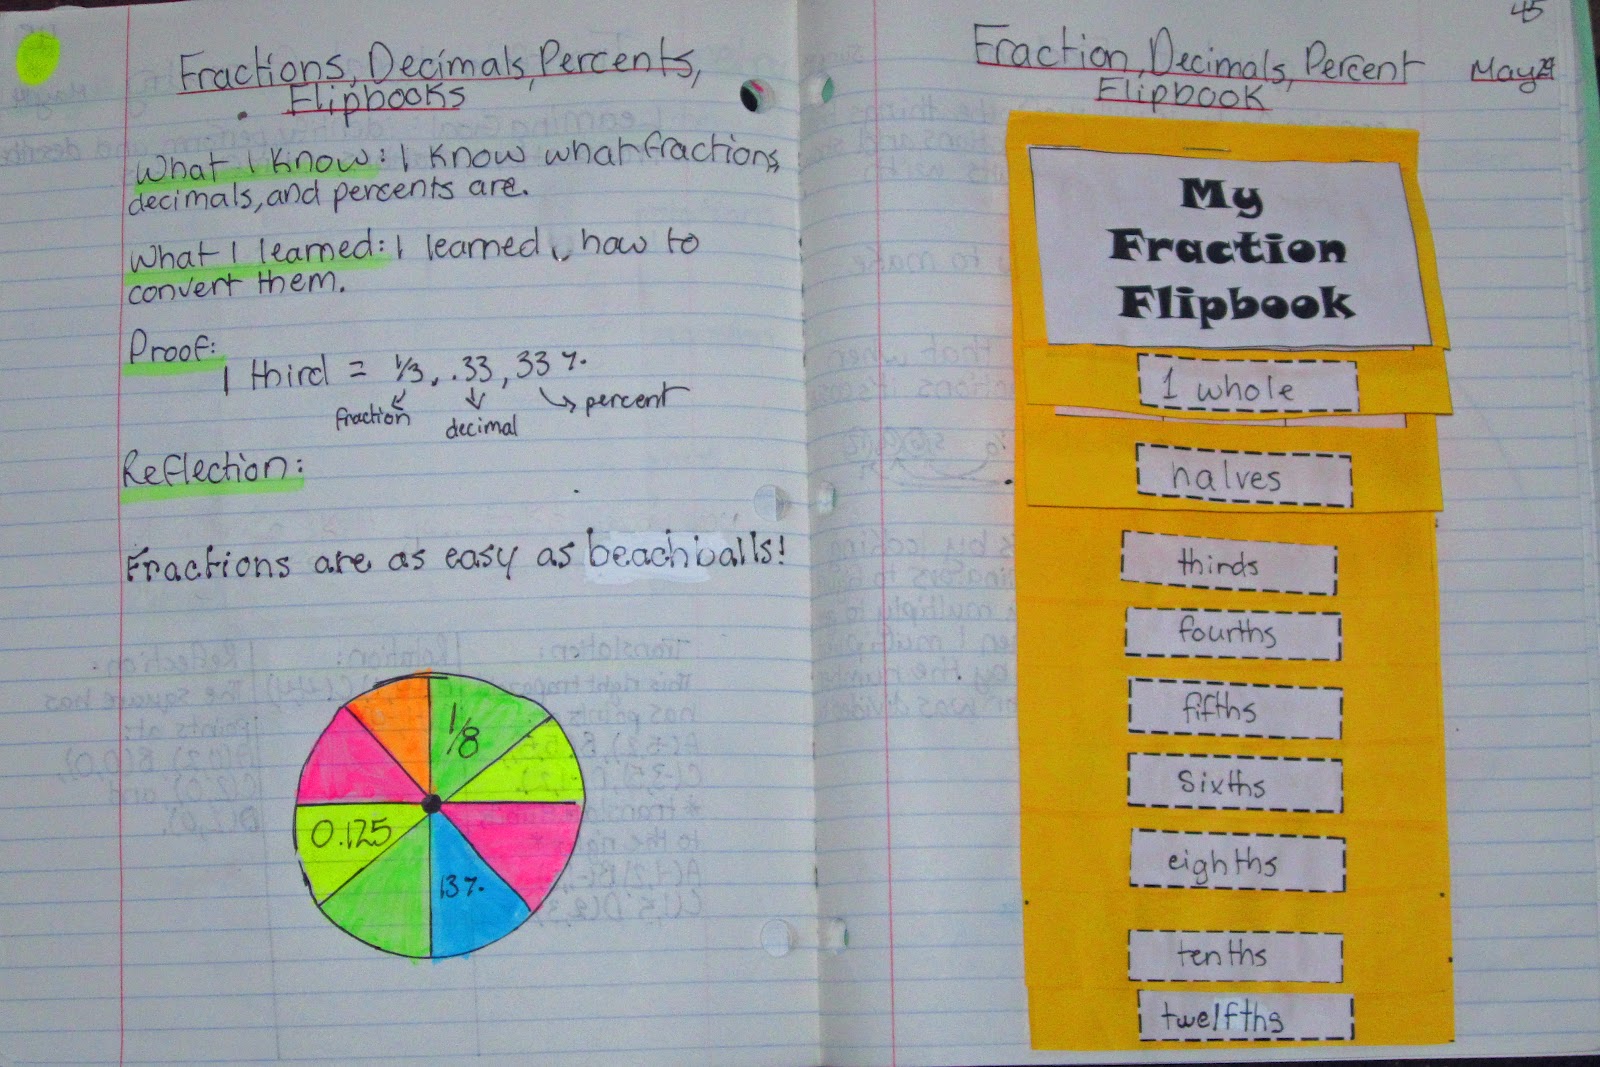 Fractions, Decimals, Percents,
Flipbooks
What I know: I know what fractions,
decimals, and percents are.
What I learned: I learned how to
convert them.
Proof:
1 third = 1/3, .33, 33%
fraction decimal percent
Reflection:
Fractions are as easy as beachballs!
1/8
0.125
13%
45
Fraction, Decimals, Percent May
Flipbook
My
Fraction
Flipbook
1 whole
halves
thirds
fourths
fifths
sixths
eighths
tenths
twelfths